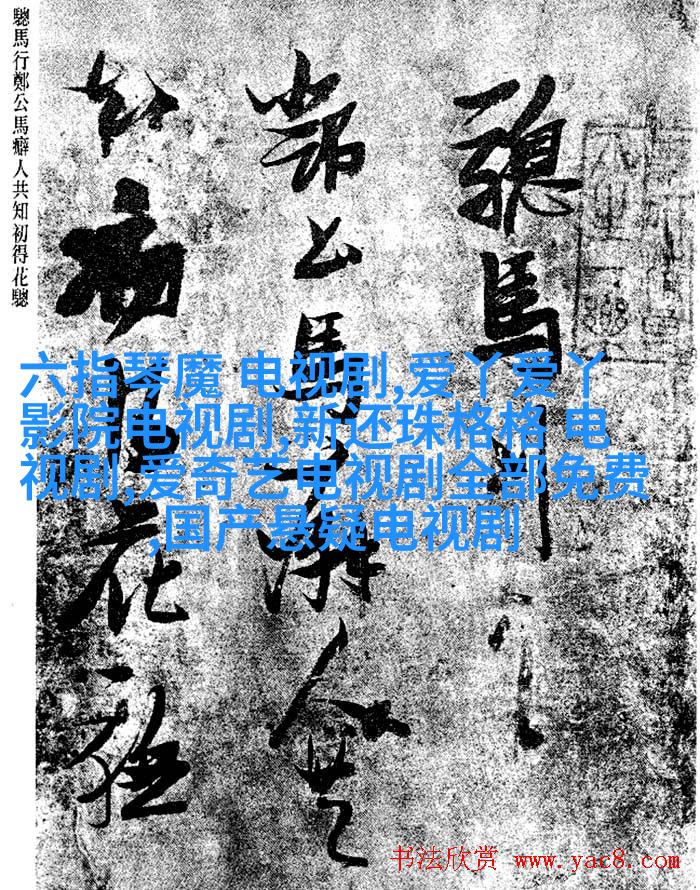 驄馬行
鄭公馬癖人共
知初得花驄
驄馬行鄭公馬癖人共知初得花驄
六指琴魔 电视剧,爱丫爱丫
影院电视剧,新还珠格格 电
视剧,爱奇艺电视剧全部免费
,国产悬疑电视剧
书法欣赏 www.yac8.com